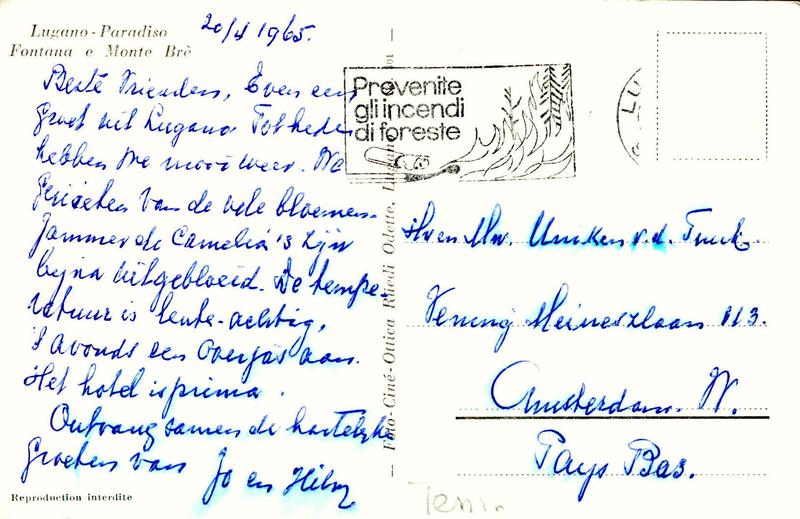 Lugano-Paradiso
Fontana e Monte Brè
20/4 1965.
Beste Vrienden, Even een
groet uit Lugano. Tot heden
hebben we mooi weer. We
genieten van de vele bloemen.
Jammer de Camelia's zijn
bijna uitgebloeid. De tempe-
ratuur is lente-achtig,
's avonds een overjas aan.
Het hotel is prima.
Ontvang samen de hartelijke
groeten van Jo en
Reproduction interdite
Foto-Ciné-Ottica Rüedi Odette, Lugano
Prevenite
gli incendi
di foreste
LU
Hr en Mw. Uniken v.d.
Vening Meineszlaan 113.
Amsterdam. W.
Pays Bas.